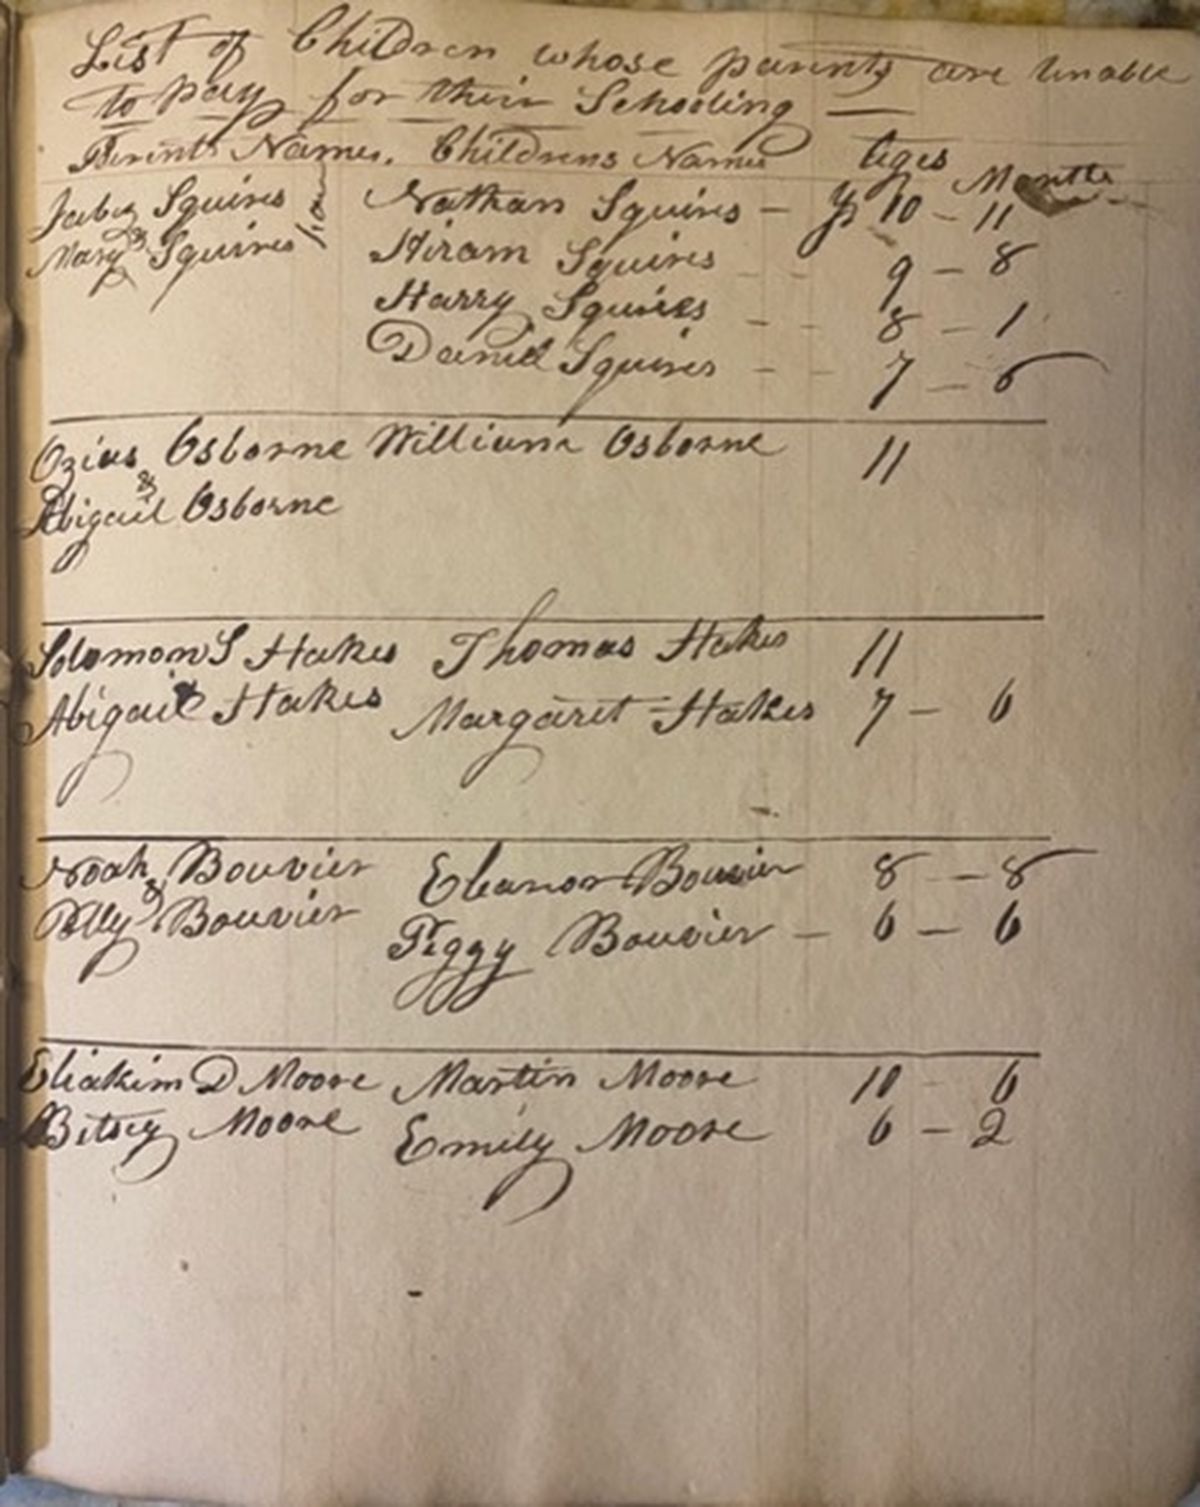 List of Children whose parents are unable
to pay for their Schooling —
Perents Names. Childrens Names Ages Months
Jabez Squires Nathan Squires — Ys 10 — 11
& Mary Squires Hiram Squires - - 9 — 8
Harry Squires - - 8 — 1
Daniel Squires - - 7 — 6
Ozias Osborne William Osborne 11
& Abigail Osborne
Solomon S Hakes Thomas Hakes 11
& Abigail Hakes Margaret Hakes 7 — 6
Noah Bouvier Eleanor Bouvier 8 — 8
& Polly Bouvier Peggy Bouvier — 6 — 6
Eliakim D Moore Martin Moore 10 - 6
Betsey Moore Emily Moore 6 — 2